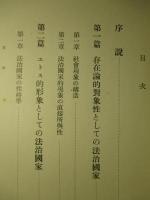 目次
序說
第一篇 存在論的對象性としての法治國家
第一章 社會現象の構造
第二章 法治國家的現象の直接所與性
第二篇 エトス的形象としての法治國家
第一章 法治國家の性格學